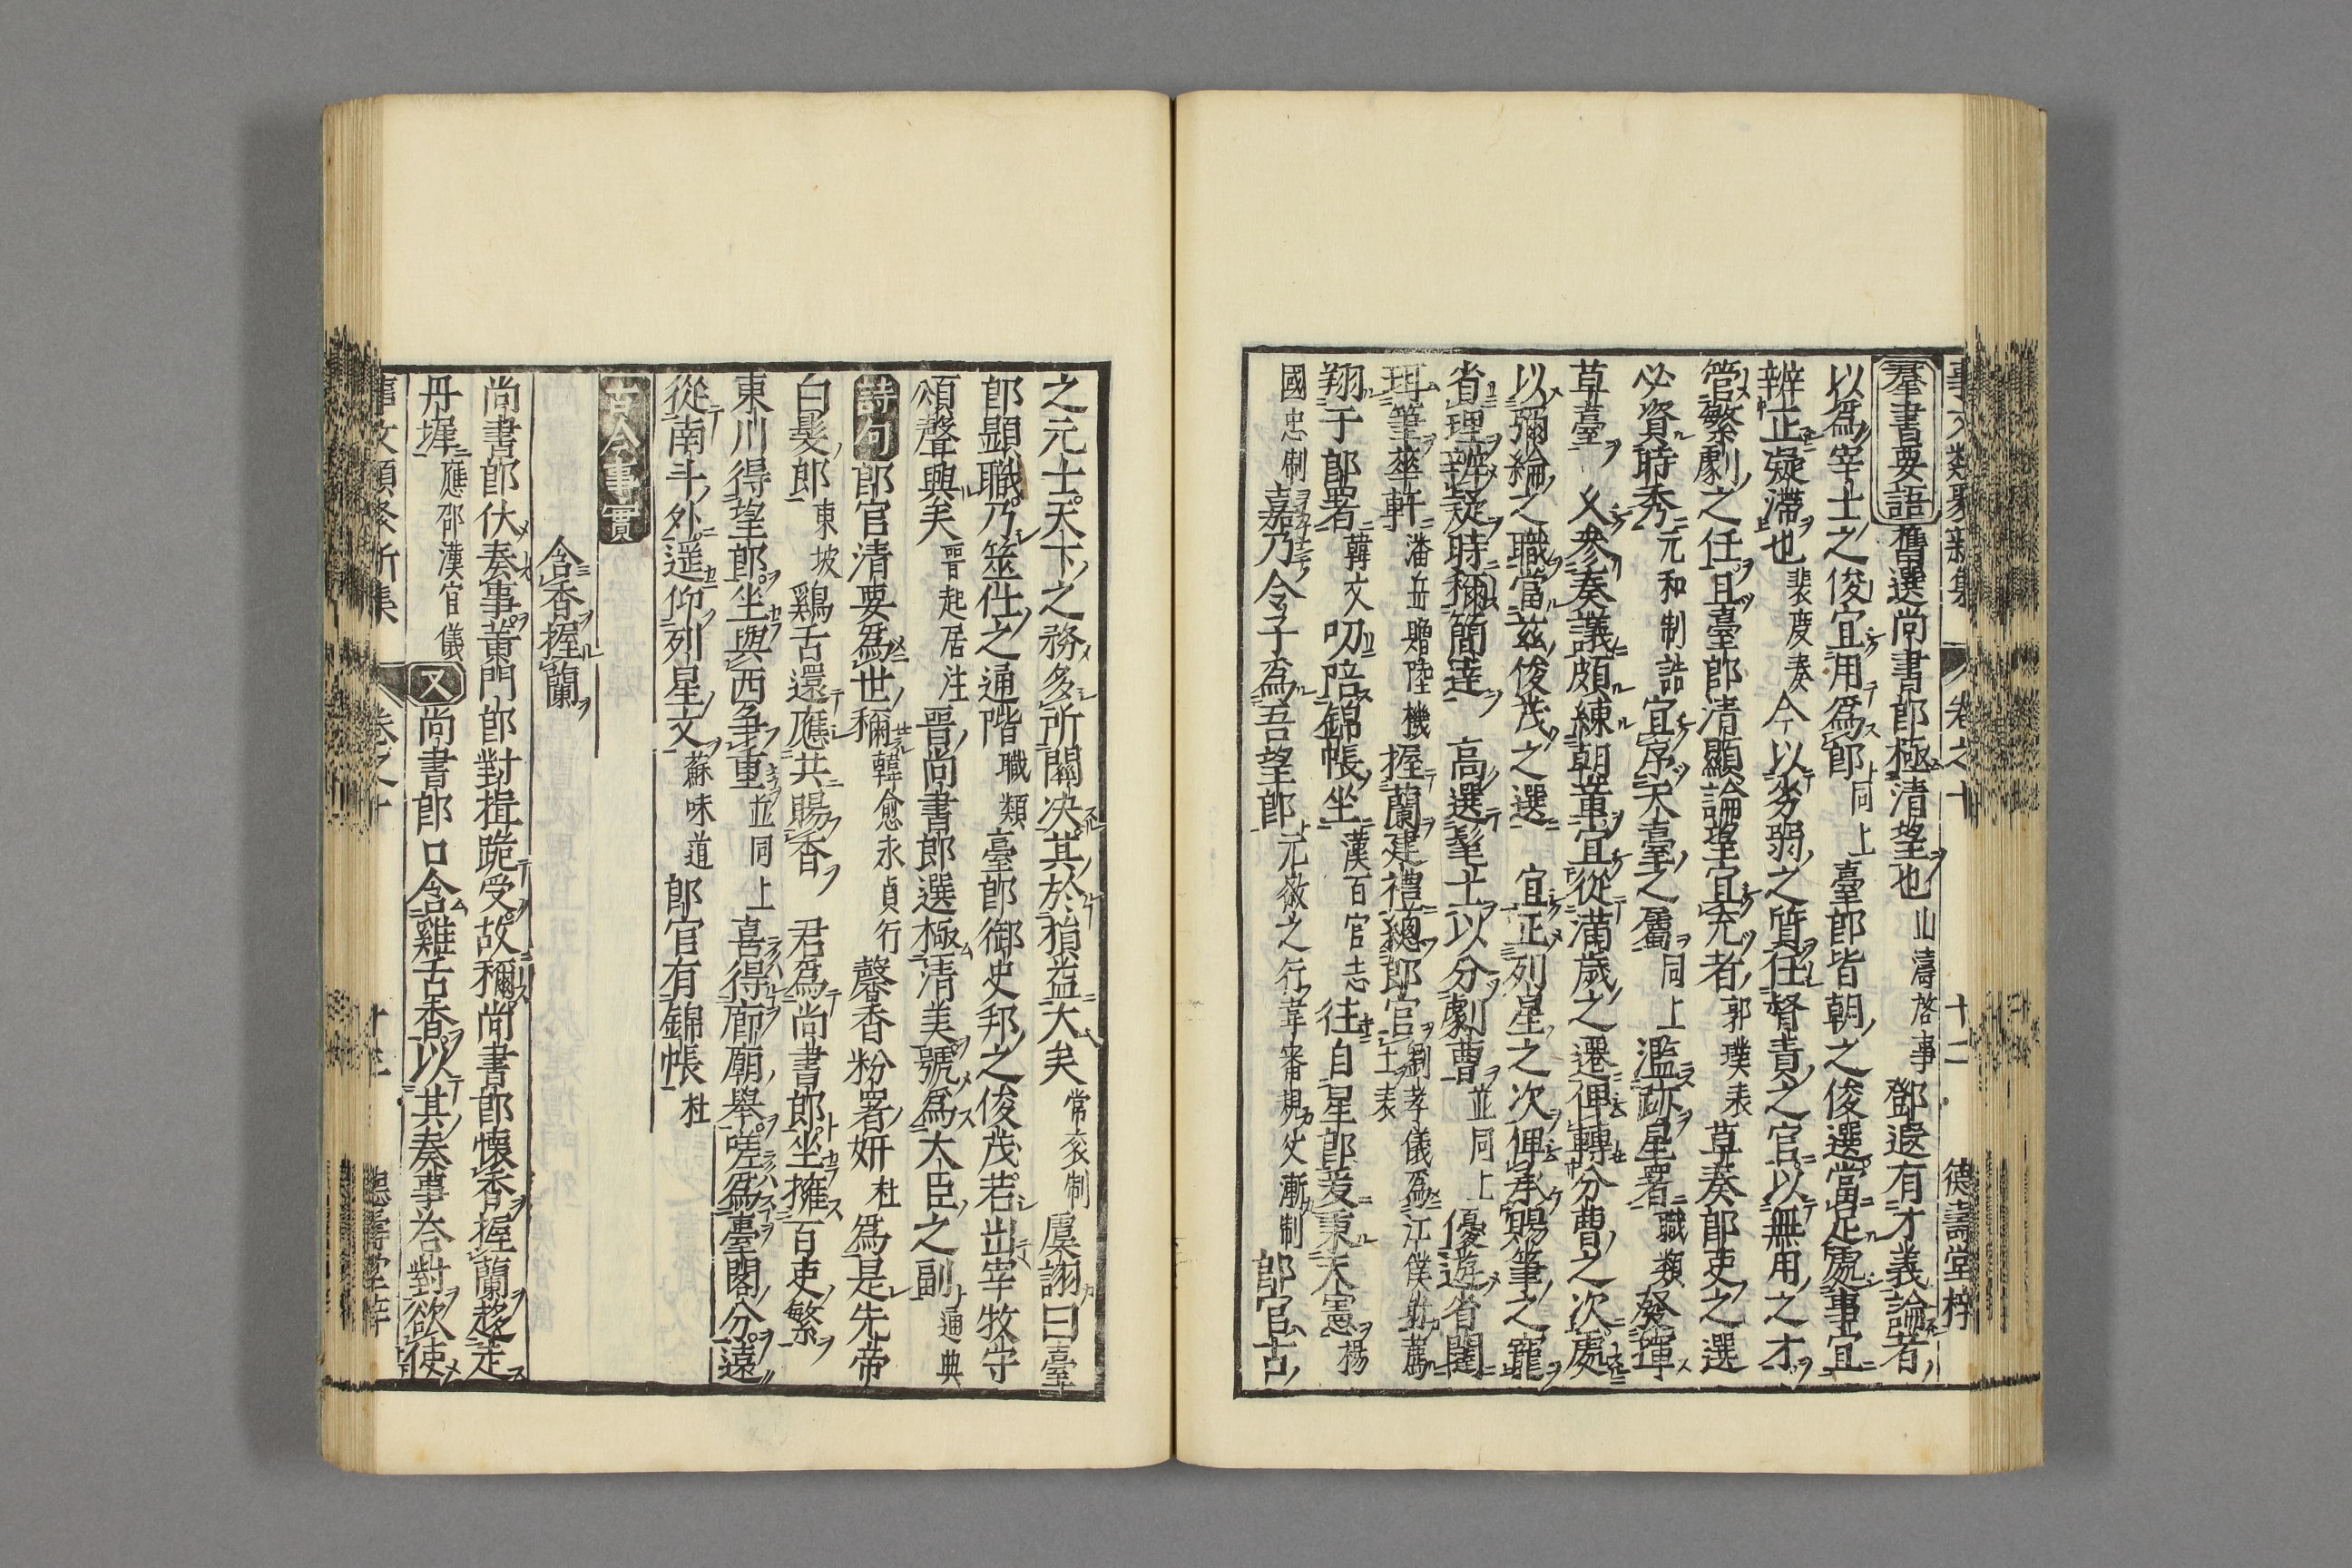 事文類聚新集 卷之十 十二 德壽堂梓
羣書要語 舊選尚書郎極清望也 山濤啓事 鄧遐有才義論者
以爲宰士之俊宜用爲郎 同上 臺郎皆朝之俊選當足處事宜
辨正凝滯也 裴度奏 今以劣弱之質任督責之官以無用之才
管繁劇之任且臺郎清顯論望宜充者 郭璞表 草奏郎吏之選
必資時秀 元和制誥 宜序天臺之屬 同上 濫跡星署 職類 發揮
草臺 乂參奏議頗練朝章宜從滿歲之遷俾轉分曹之次處
以彌綸之職當茲俊茂之選 宜正列星之次俾承賜筆之寵
省理辨疑時稱簡達 高選髦士以分劇曹 並同上 優遊省闥
珥筆華軒 潘岳贈陸機 握蘭建禮總郎官 劉孝儀爲江僕射薦士表
翔于郎署 韓文 叨陪錦帳坐 漢百官志 往自星郎爰秉天憲 楊
國忠制 嘉乃令子爲吾望郎 元微之行韋審規父漸制 郎官古
之元士天下之務多所關决其於損益大矣 常衮制 虞詡曰臺
郎顯職乃筮仕之通階 職類 臺郎御史邦之俊茂若出宰牧守
頌聲興矣 晋起居注 晋尚書郎選極清美號爲大臣之副 通典
詩句 郎官清要爲世稱 韓愈永貞行 馨香粉署妍 杜 爲是先帝
白髮郎 東坡 鷄舌還應共賜香 君爲尚書郎坐擁百吏繁
東川得望郎坐與西争重 並同上 喜得廊廟舉嗟爲臺閣分遠
從南斗外遥仰列星文 蘇味道 郎官有錦帳 杜
古今事實
含香握蘭
尚書郎伏奏事黄門郎對揖跪受故稱尚書郎懷香握蘭趍走
丹墀 應邵漢官儀 又 尚書郎口含雞舌香以其奏事荅對欲使
事文類聚新集 卷之十 十三 德壽堂梓